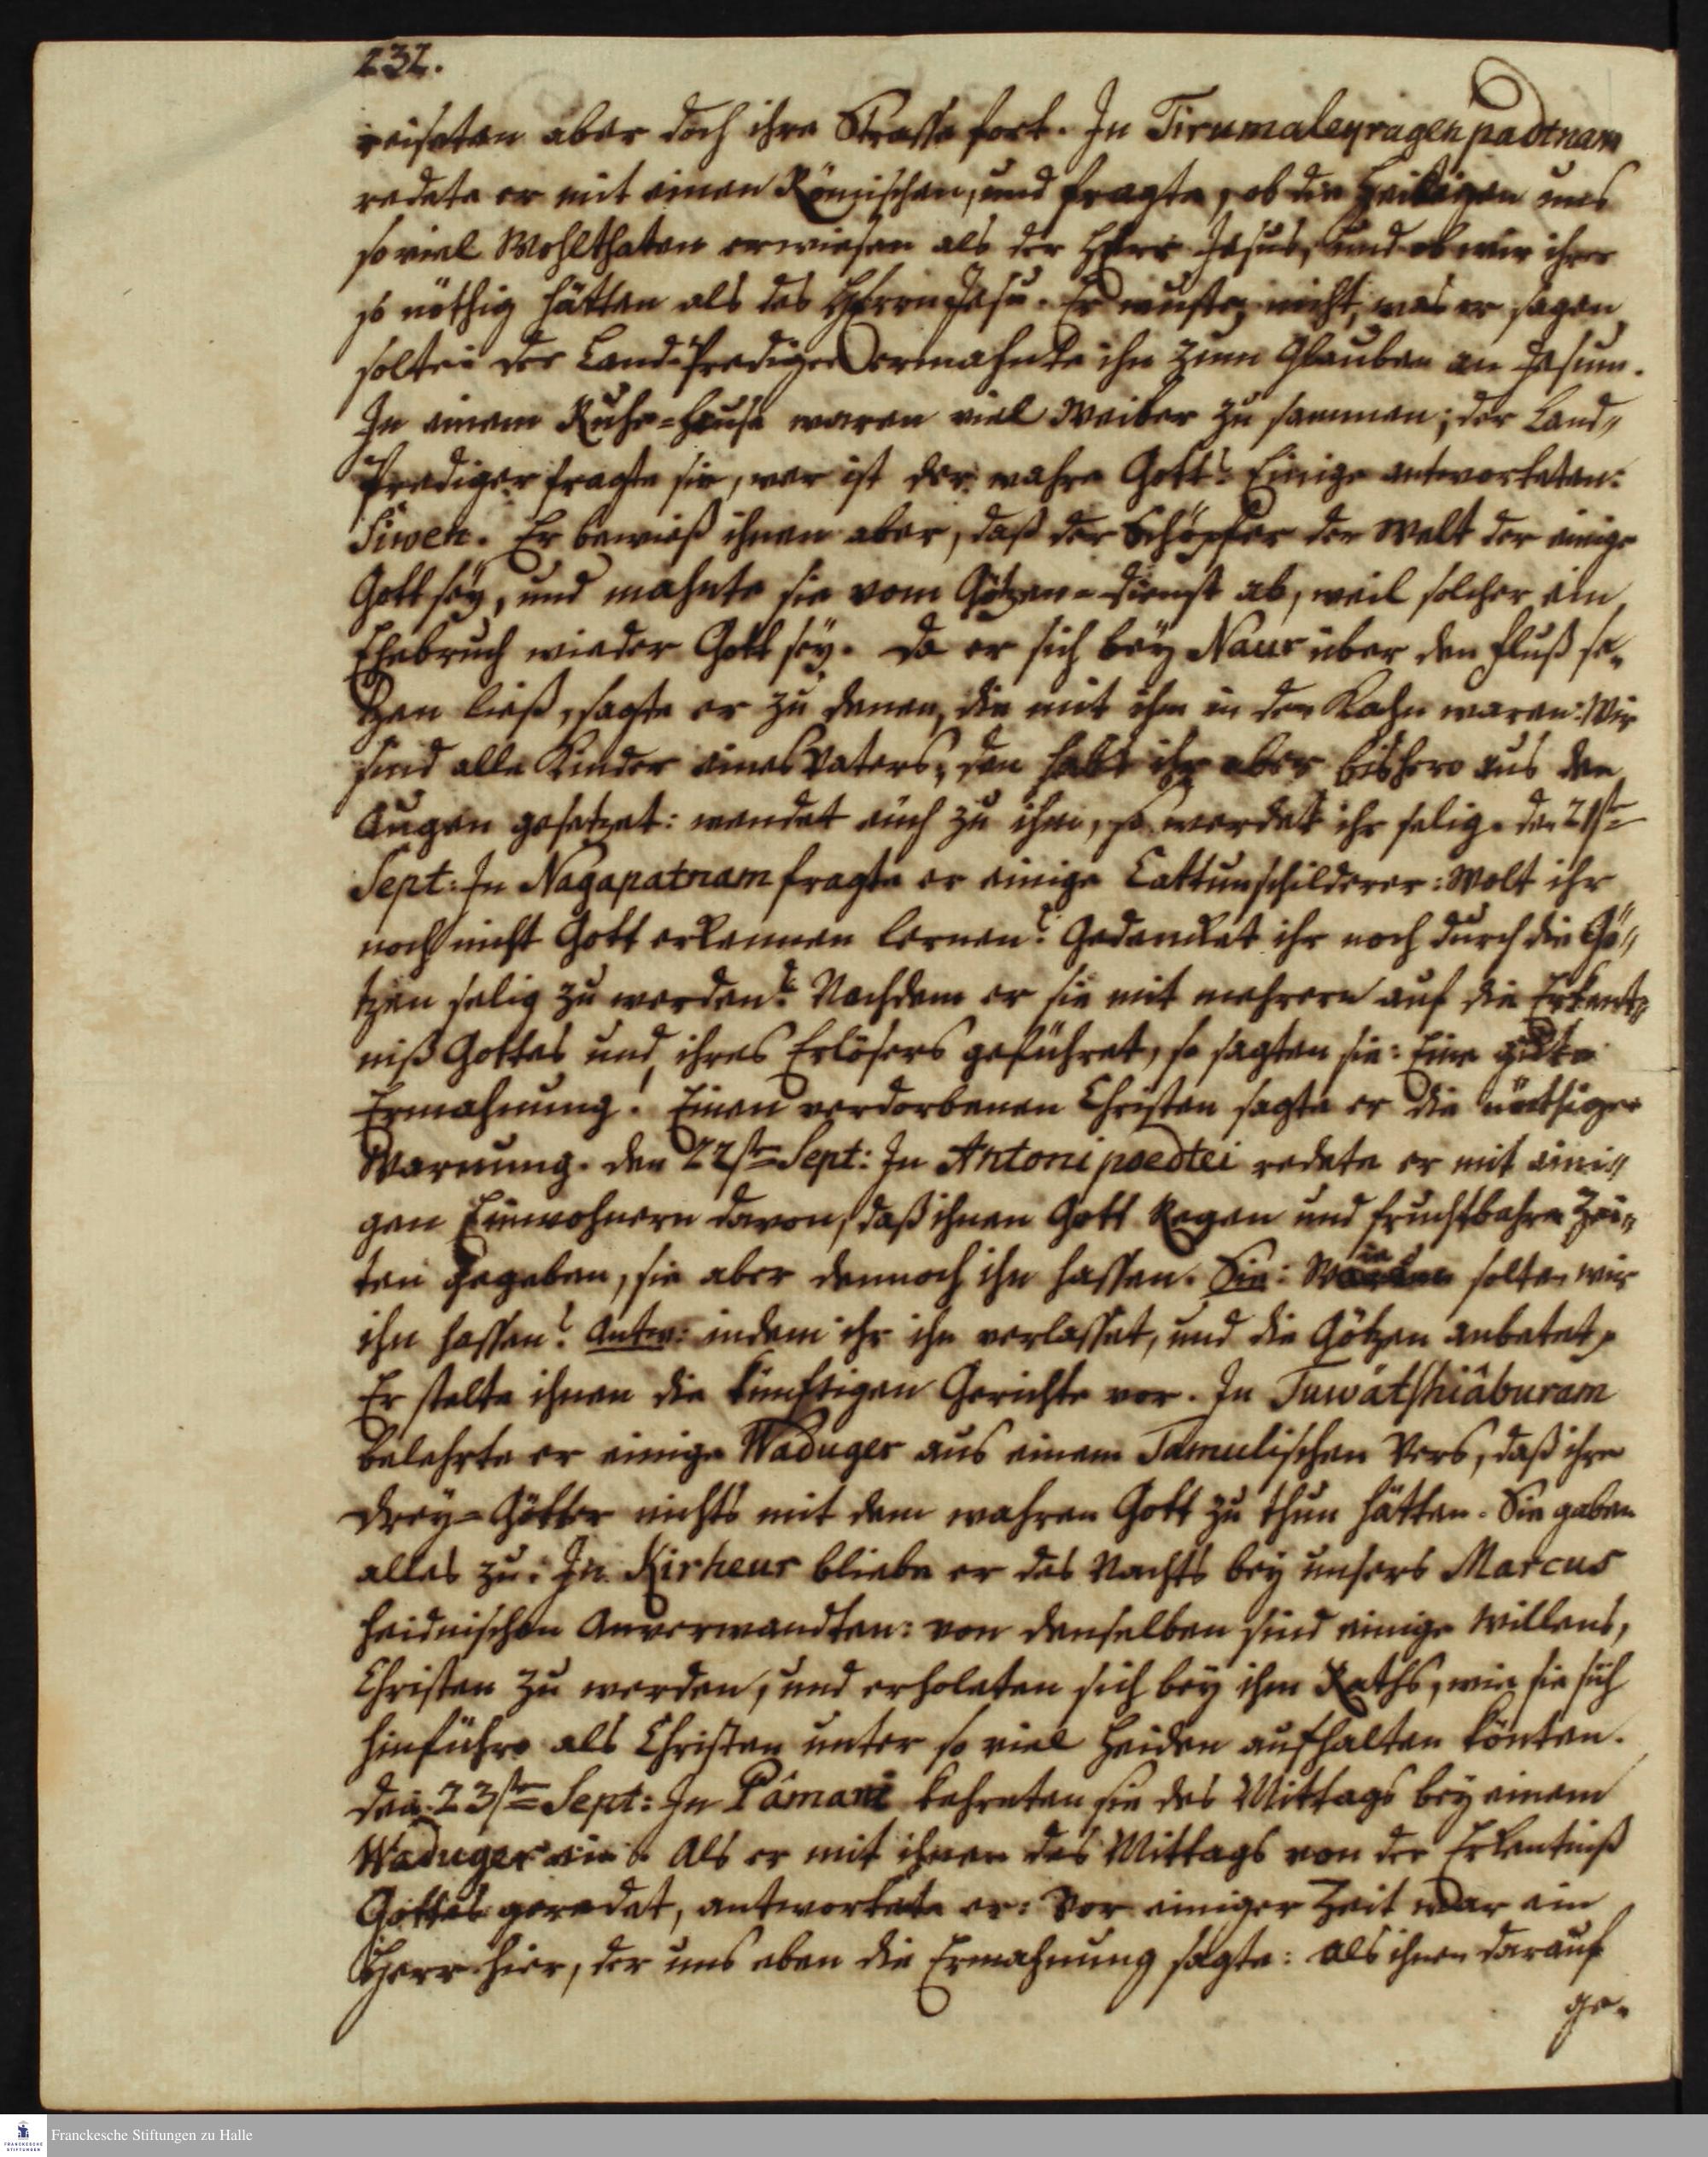 232.
reiseten aber doch ihre Strasse fort. In Tirumaleyragenpadtnam
redete er mit einen Römischen, und fragte, ob die Heiligen uns
so viel Wohlthaten erwiesen als der Herr Jesus, und ob wir ihrer
so nöthig hätten als des HErrn Jesu. Er wuste nicht, was er sagen
solte: der Land-Prediger ermahnte ihn zum Glauben an Jesum.
In einem Ruhe=Hause waren viel Weiber zu sammen; der Land„
Prediger fragte sie, wer ist der wahre Gott? Einige antworteten:
Siwen. Er bewieß ihnen aber, daß der Schöpfer der Welt der einige
Gott sey, und mahnte sie vom Götzen=Dienst ab, weil solcher ein
Ehebruch wieder Gott sey. Da er sich bey Naur über den Fluß se„
tzen ließ, sagte er zu denen, die mit ihm in den Kahn waren: Wir
sind alle Kinder eines Vaters, den habt ihr aber bishero aus den
Augen gesetzet: wendet euch zu ihm, so werdet ihr selig. den 21st=
Sept: In Nagapatnam fragte er einige Cattunschilderer: Wolt ihr
noch nicht Gott erkennen lernen? Gedencket ihr noch durch die Gö„
tzen selig zu werden? Nachdem er sie mit mehrern auf die Erkent„
niß Gottes und ihres Erlösers geführet, so sagten sie: Eine gute
Ermahnung! Einen verdorbenen Christen sagte er die nöthige
Warnung. den 22st= Sept: In Antonipoedtei redete er mit eini„
gen Einwohnern davon, daß ihnen Gott Regen und fruchtbahre Zei„
ten gegeben, sie aber dennoch ihn hassen. Sie: Wie solten wir
ihn hassen? Antw: indem ihr ihn verlasset, und die Götzen anbetet.
Er stelte ihnen die künftigen Gerichte vor. In Tuwâtshiâburam
belehrte er einige Waduger aus einem Tamulischen Vers, daß ihre
drey=Götter nichts mit dem wahren Gott zu thun hätten. Sie gaben
alles zu. In Kirheur bliebe er des Nachts bey unsers Marcus
heidnischen Anverwandten: von denselben sind einige willens,
Christen zu werden, und erholeten sich bey ihm Raths, wie sie sich
hinführo als Christen unter so viel Heiden aufhalten könten.
den 23st= Sept: In Pâmani kehreten sie des Mittags bey einem
Waduger ein. Als er mit ihnen des Mittags von der Erkentniß
Gottes geredet, antwortete er: Vor einiger Zeit war ein
Herr hier, der uns eben die Ermahnung sagte: als ihnen darauf
ge„
FRANCKESCHE
STIFTUNGEN
Franckesche Stiftungen zu Halle